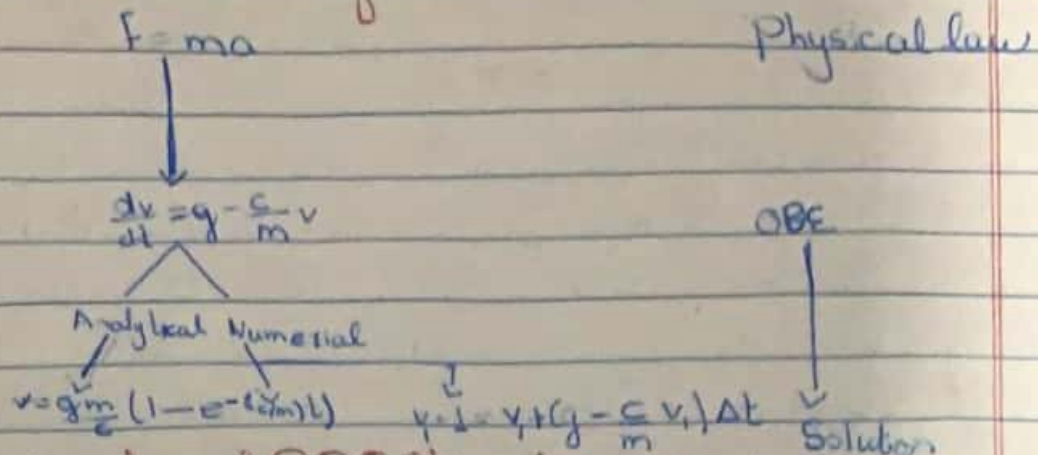 F = ma Physical law
dv/dt = g - c/m v OBE
Analytical Numerial
v = g m/c (1 - e^-(c/m)t) vi+1 = vi + (g - c/m vi) Δt Solution